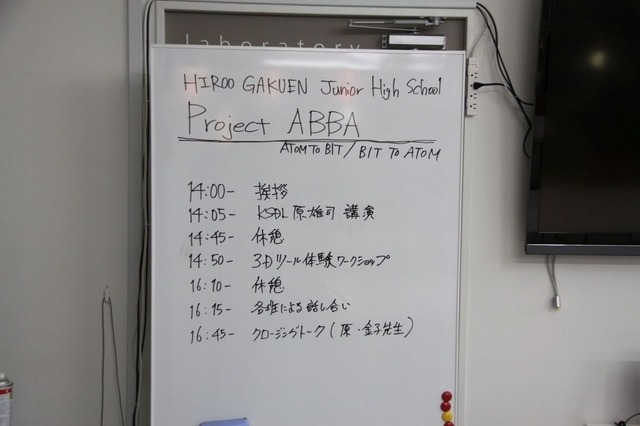 laboratory
HIROO GAKUEN Junior High School
Project ABBA
ATOM TO BIT / BIT TO ATOM
14:00- 挨拶
14:05- KSDL 原雄司 講演
14:45- 休憩
14:50- 3Dツール体験ワークショップ
16:10- 休憩
16:15- 各班による話し合い
16:45- クロージングトーク(原・金子先生)